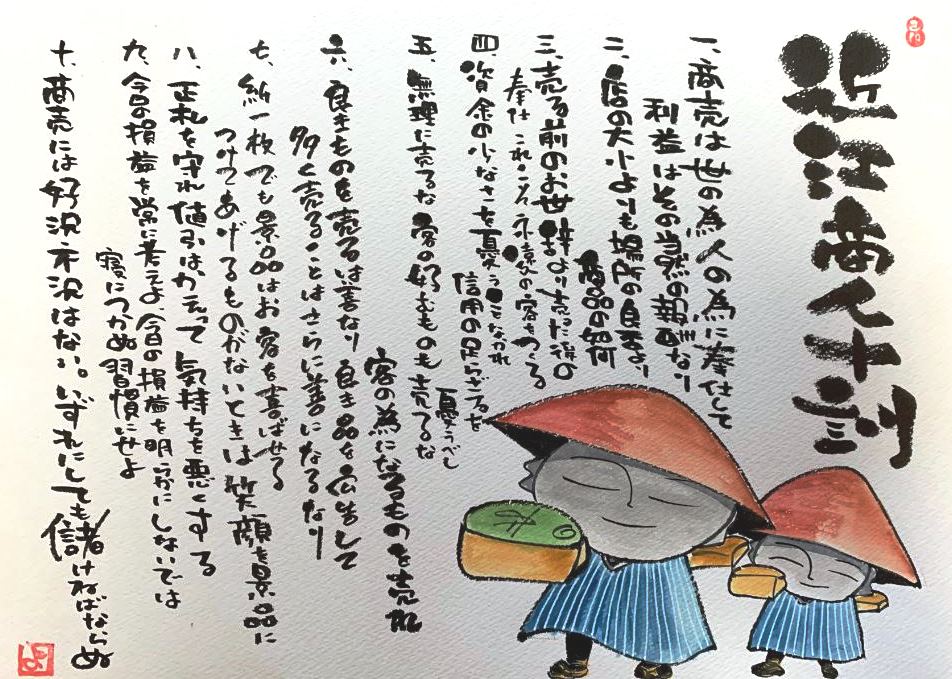 近江商人十訓
一、商売は世の為人の為に奉仕して
利益はその当然の報酬なり
二、店の大小よりも場所の良否より
商品の如何
三、売る前のお世辞より売った後の
奉仕これこそ永遠の客をつくる
四、資金の少なさを憂うことなかれ
信用の足らざるを
憂うべし
五、無理に売るな客の好むものも売るな
客の為になるものを売れ
六、良きものを売るは善なり良き品を広告して
多く売ることはさらに善になるなり
七、紙一枚でも景品はお客を喜ばせる
つけてあげるものがないときは笑顔を景品に
八、正札を守れ値引はかえって気持ちを悪くする
九、今日の損益を常に考えよ、今日の損益を明らかにしないでは
寝につかぬ習慣にせよ
十、商売には好況、不況はない。いずれにしても儲けねばならぬ